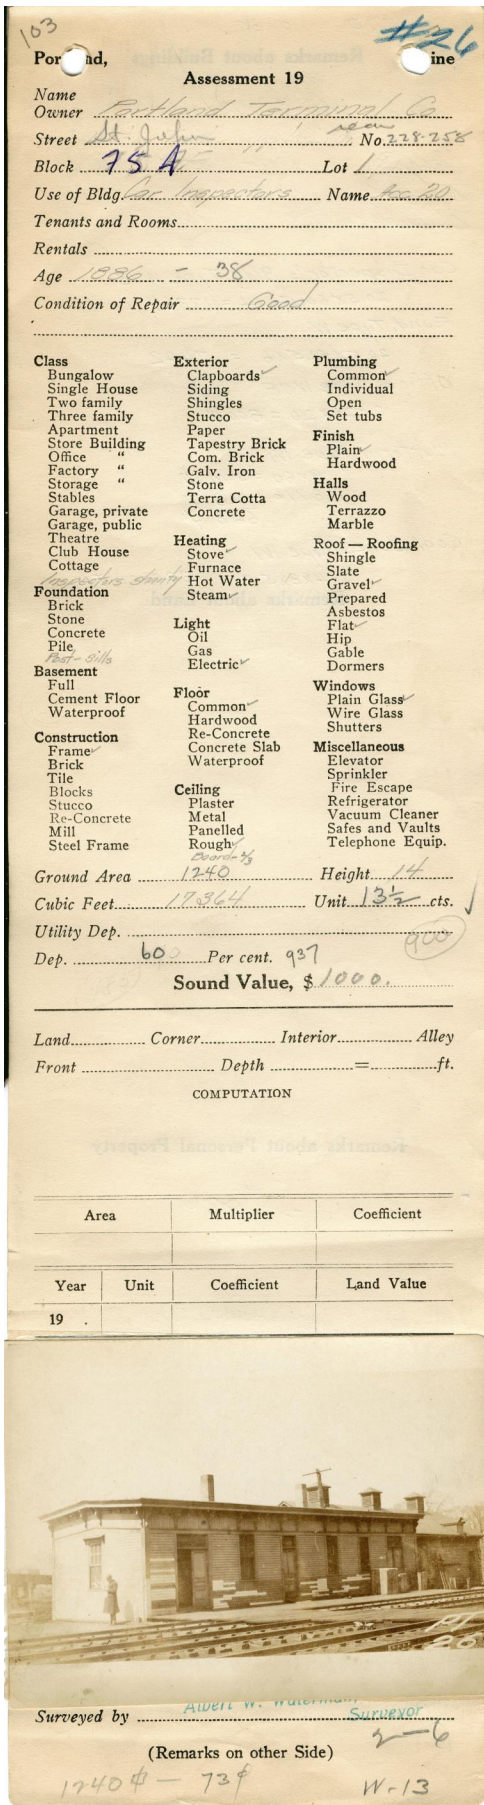 103
#26
Portland, Maine
Assessment 19
Name
Owner Portland Terminal Co
Street St. John rear No. 228-258
Block 75A Lot 1
Use of Bldg. Car Inspectors Name Acc. 20
Tenants and Rooms
Rentals
Age 1886 - 38
Condition of Repair Good
Class
Bungalow
Single House
Two family
Three family
Apartment
Store Building
Office "
Factory "
Storage "
Stables
Garage, private
Garage, public
Theatre
Club House
Cottage
Inspectors shanty
Foundation
Brick
Stone
Concrete
Pile
Post - sills
Basement
Full
Cement Floor
Waterproof
Construction
Frame ✓
Brick
Tile
Blocks
Stucco
Re-Concrete
Mill
Steel Frame
Exterior
Clapboards ✓
Siding
Shingles
Stucco
Paper
Tapestry Brick
Com. Brick
Galv. Iron
Stone
Terra Cotta
Concrete
Heating
Stove ✓
Furnace
Hot Water
Steam ✓
Light
Oil
Gas
Electric ✓
Floor
Common ✓
Hardwood
Re-Concrete
Concrete Slab
Waterproof
Ceiling
Plaster
Metal
Panelled
Rough ✓
Board - 2/3
Plumbing
Common ✓
Individual
Open
Set tubs
Finish
Plain ✓
Hardwood
Halls
Wood
Terrazzo
Marble
Roof — Roofing
Shingle
Slate
Gravel ✓
Prepared
Asbestos
Flat ✓
Hip
Gable
Dormers
Windows
Plain Glass ✓
Wire Glass
Shutters
Miscellaneous
Elevator
Sprinkler
Fire Escape
Refrigerator
Vacuum Cleaner
Safes and Vaults
Telephone Equip.
Ground Area 1240 Height 14
Cubic Feet 17,364 Unit 13½ cts. ✓
Utility Dep.
900
Dep. 60 Per cent. 937
Sound Value, $ 1000.
Land Corner Interior Alley
Front Depth = ft.
COMPUTATION
Area Multiplier Coefficient
Year Unit Coefficient Land Value
19 .
20
Surveyed by Albert W. Waterman, Surveyor
2-6
(Remarks on other Side)
1240 ¢ - 73¢
W-13